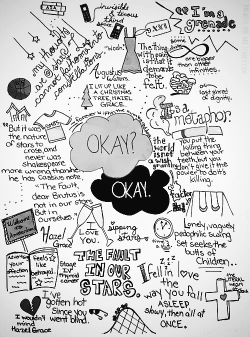 invisible
& obvious
third
"I'm a
grenade
my thoughts
are stars
I cannot fathom into
constellations
"The thing
with pain
is that it
demands
to be
felt."
Augustus
Waters
Some
infinities
are bigger
than other
infinities.
I LIT UP LIKE
A CHRISTMAS
TREE, HAZEL
GRACE.
It's a
metaphor.
"But it was
the nature
of stars
to cross
and never
was
Shakespeare
more wrong than when
he has Cassius note
"The Fault,
dear Brutus is
not in our stars
But in
ourselves."
OKAY?
OKAY.
the world
is not
a wish
granting
You put the
killing thing
between your
teeth, but you
don't give it the
power to do its
killing.
Love
You.
Hazel
Grace
Stage
IV
thyroid
cancer
sipping
stars
Lonely, vaguely
pedophilic swing
set seeks the
butts of
Children.
feels like
betrayal.
THE FAULT
IN OUR
STARS.
I fell in love
the
way you fall
ASLEEP
slowly, then all at
ONCE.
I've
gotten hot
Since you
went blind.
I wouldn't
mind
Hazel Grace